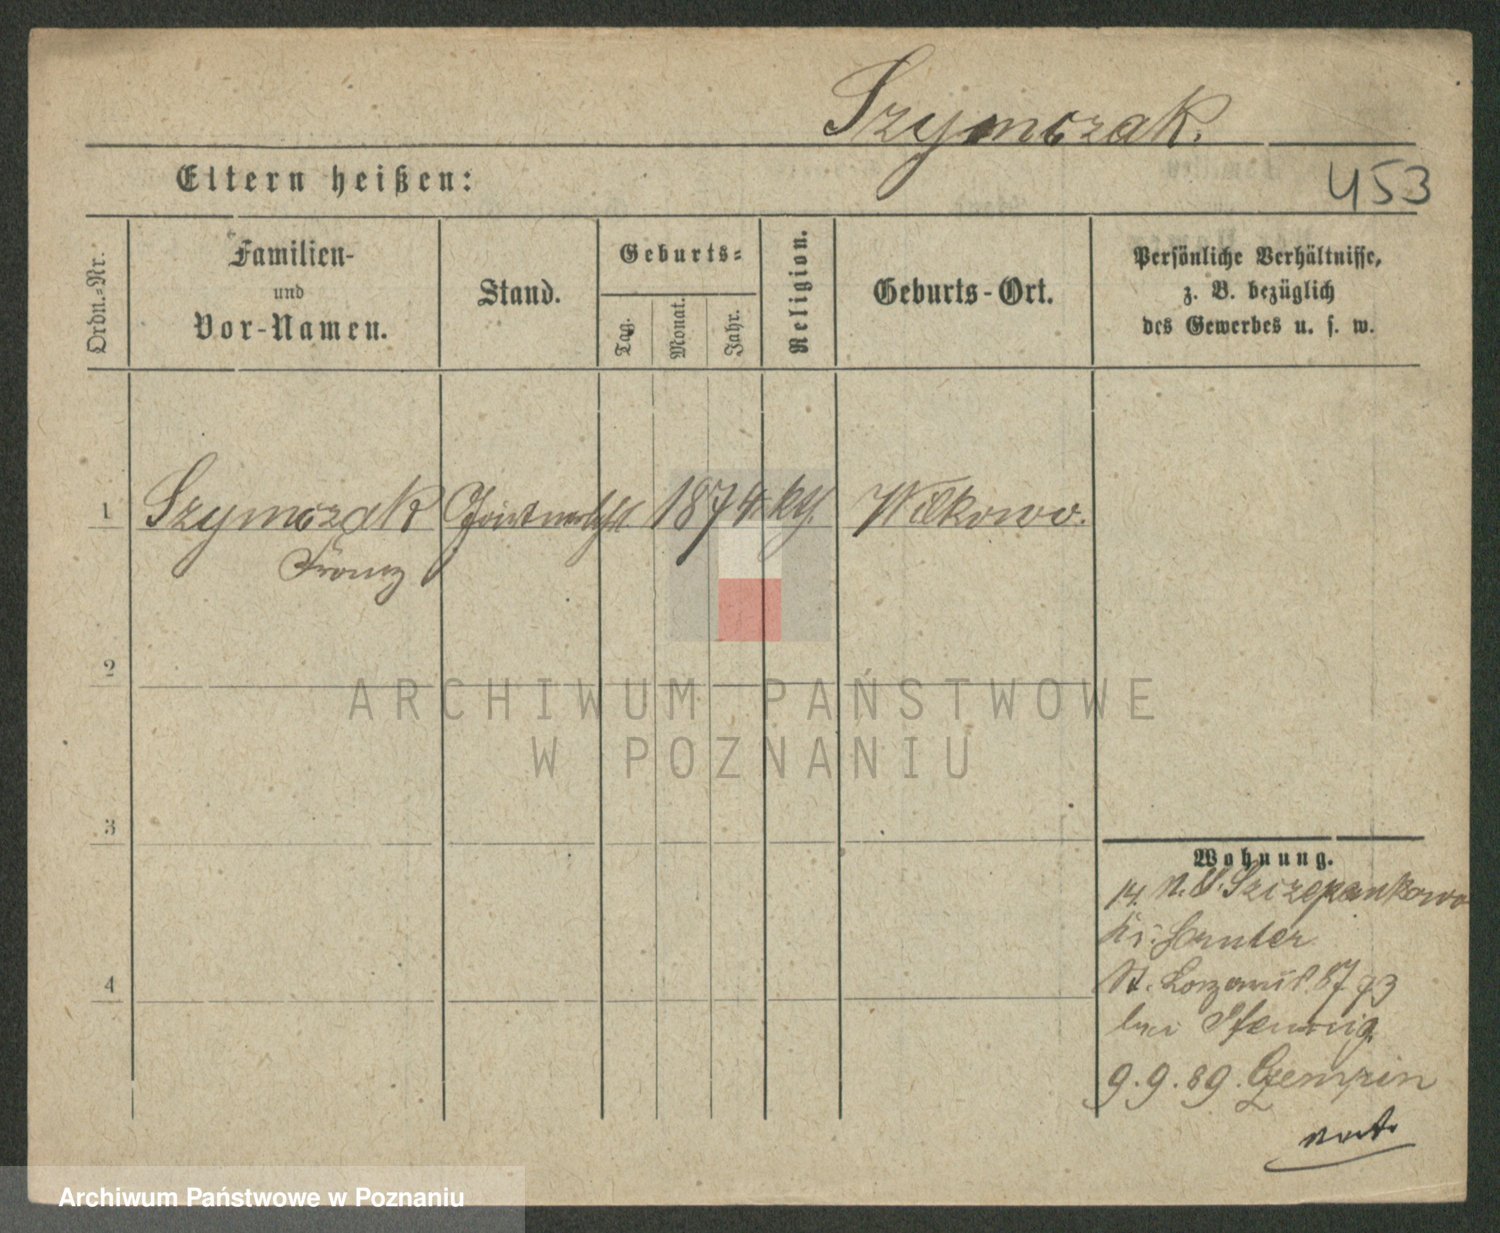 Szymczak.
453
Eltern heißen:
Ordn.-Nr.
Familien-
und
Vor-Namen.
Stand.
Geburts-
Tag.
Monat.
Jahr.
Religion.
Geburts-Ort.
Persönliche Verhältnisse,
z. B. bezüglich
des Gewerbes u. s. w.
1
Szymczak
Franz
1874
kth.
Wilkowo.
2
3
4
ARCHIWUM PAŃSTWOWE
W POZNANIU
Wohnung.
14. Szczepankowo
Kr. Samter
St. 87 93
bei Pfennig
9.9.89. Gempin
Archiwum Państwowe w Poznaniu